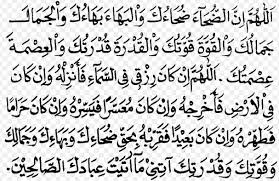 اَللّٰهُمَّ اِنَّ الضُّحَآءَ ضُحَاءُكَ وَالْبَهَاءَ بَهَاءُكَ وَالْجَمَالَ
جَمَالُكَ وَالْقُوَّةَ قُوَّتُكَ وَالْقُدْرَةَ قُدْرَتُكَ وَالْعِصْمَةَ
عِصْمَتُكَ . اَللّٰهُمَّ اِنْ كَانَ رِزْقِى فِى السَّمَآءِ فَأَنْزِلْهُ وَاِنْ كَانَ
فِى اْلأَرْضِ فَأَخْرِجْهُ وَاِنْ كَانَ مُعَسَّرًا فَيَسِّرْهُ وَاِنْ كَانَ حَرَامًا
فَطَهِّرْهُ وَاِنْ كَانَ بَعِيْدًا فَقَرِّبْهُ بِحَقِّ ضُحَاءِكَ وَبَهَاءِكَ وَجَمَالِكَ
وَقُوَّتِكَ وَقُدْرَتِكَ آتِنِى مَآ اَتَيْتَ عِبَادَكَ الصَّالِحِيْنَ.